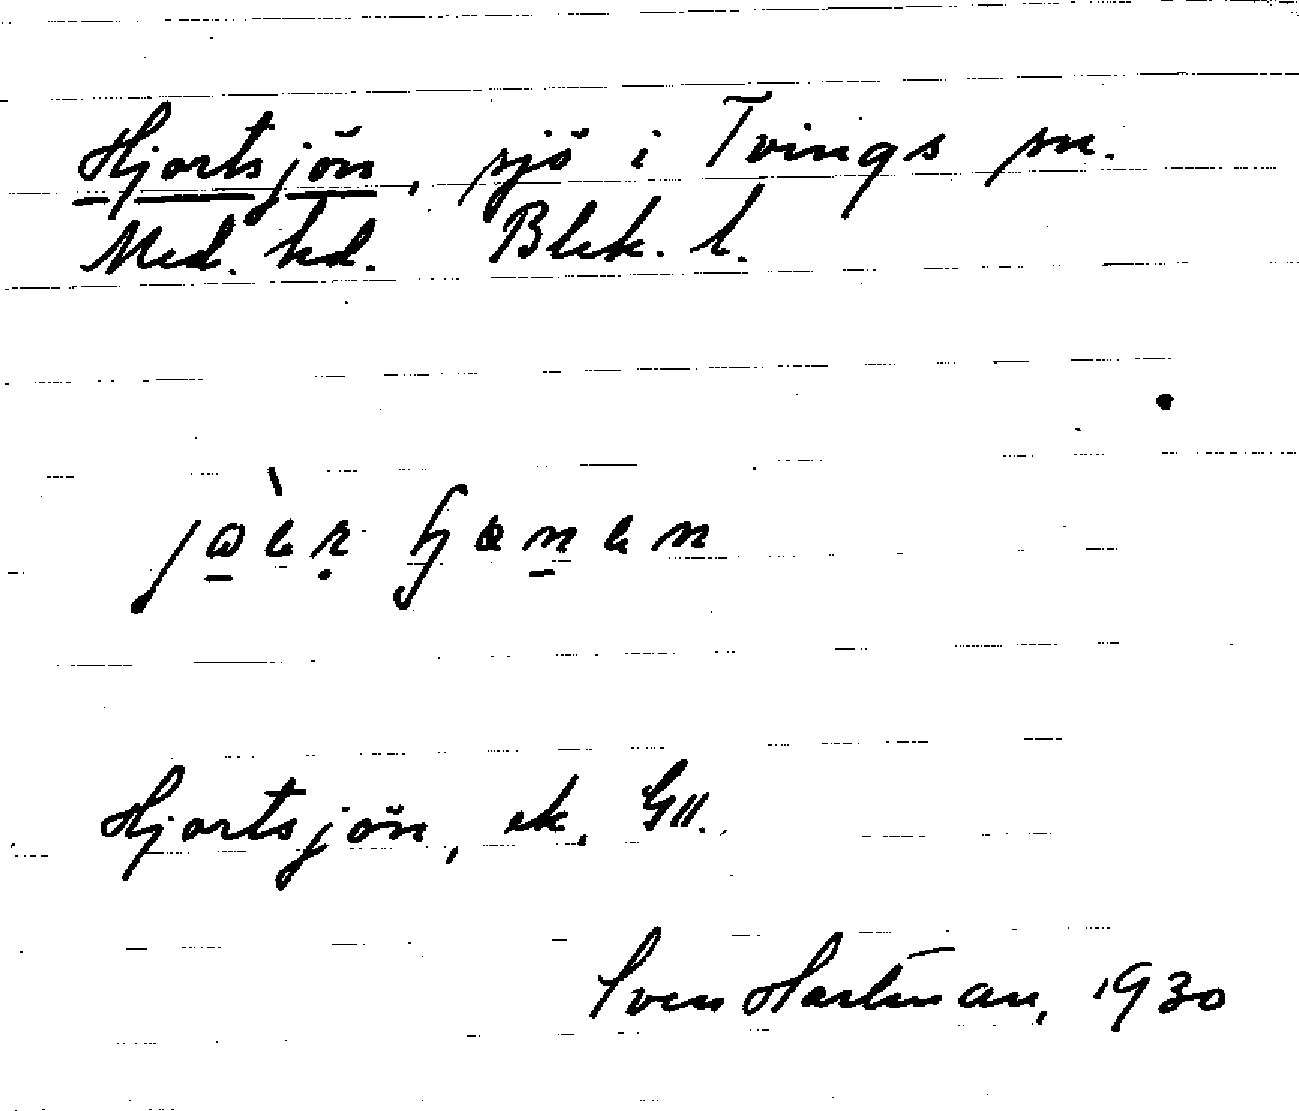 Hjortsjön, sjö i Tvings sn.
Med. hd. Blek. l.
Hjortsjön, ek.
Sven Hartman, 1930